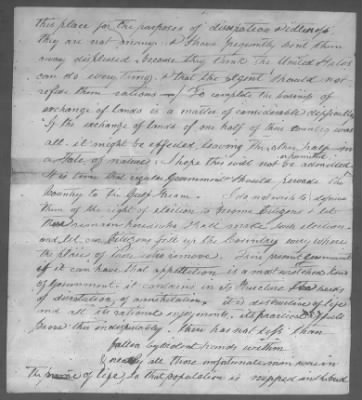 this place for the purposes of dissipation & idleness
they are not many. & I have frequently sent them
away displeased, because they think the United States
can do every thing, & that the agent should not
refuse them rations — To complete the business of
exchange of lands is a matter of considerable difficulty
If the exchange of lands of one half of their country was
all, it might be effected, leaving the other half in
a state of nature, I hope this will not be admitted
It is time that regular Government should pervade the
Country to the Gulf Stream. I do not wish to deprive
them of the right of election to become Citizens, let
them remain here who shall make such election
and let our Citizens fill up the Country every where
the places of those who remove. Their present government
if it can have that appellation is a most wretched kind
of Government. it contains in its structure the seeds
of dissolution, of annihilation. It is destructive of life
and all its rational enjoyments. its practical effects
prove this indisputably. There has not less than
fallen by violent hands within
nearly all those unfortunate men were in
the prime of life, so that population is nipped in the bud